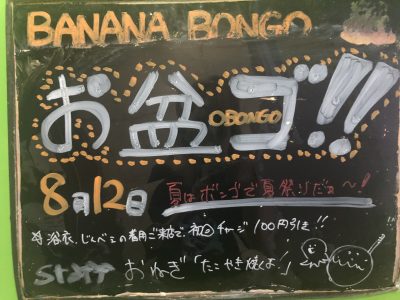 BANANA BONGO
お盆ゴ!!
OBONGO
8月12日
夏はボンゴで夏祭りだぁ〜!
浴衣、じんべえの着用ご来店で初回チャージ100円引き!!
STAFF おねぎ「たこやき焼くよ!」